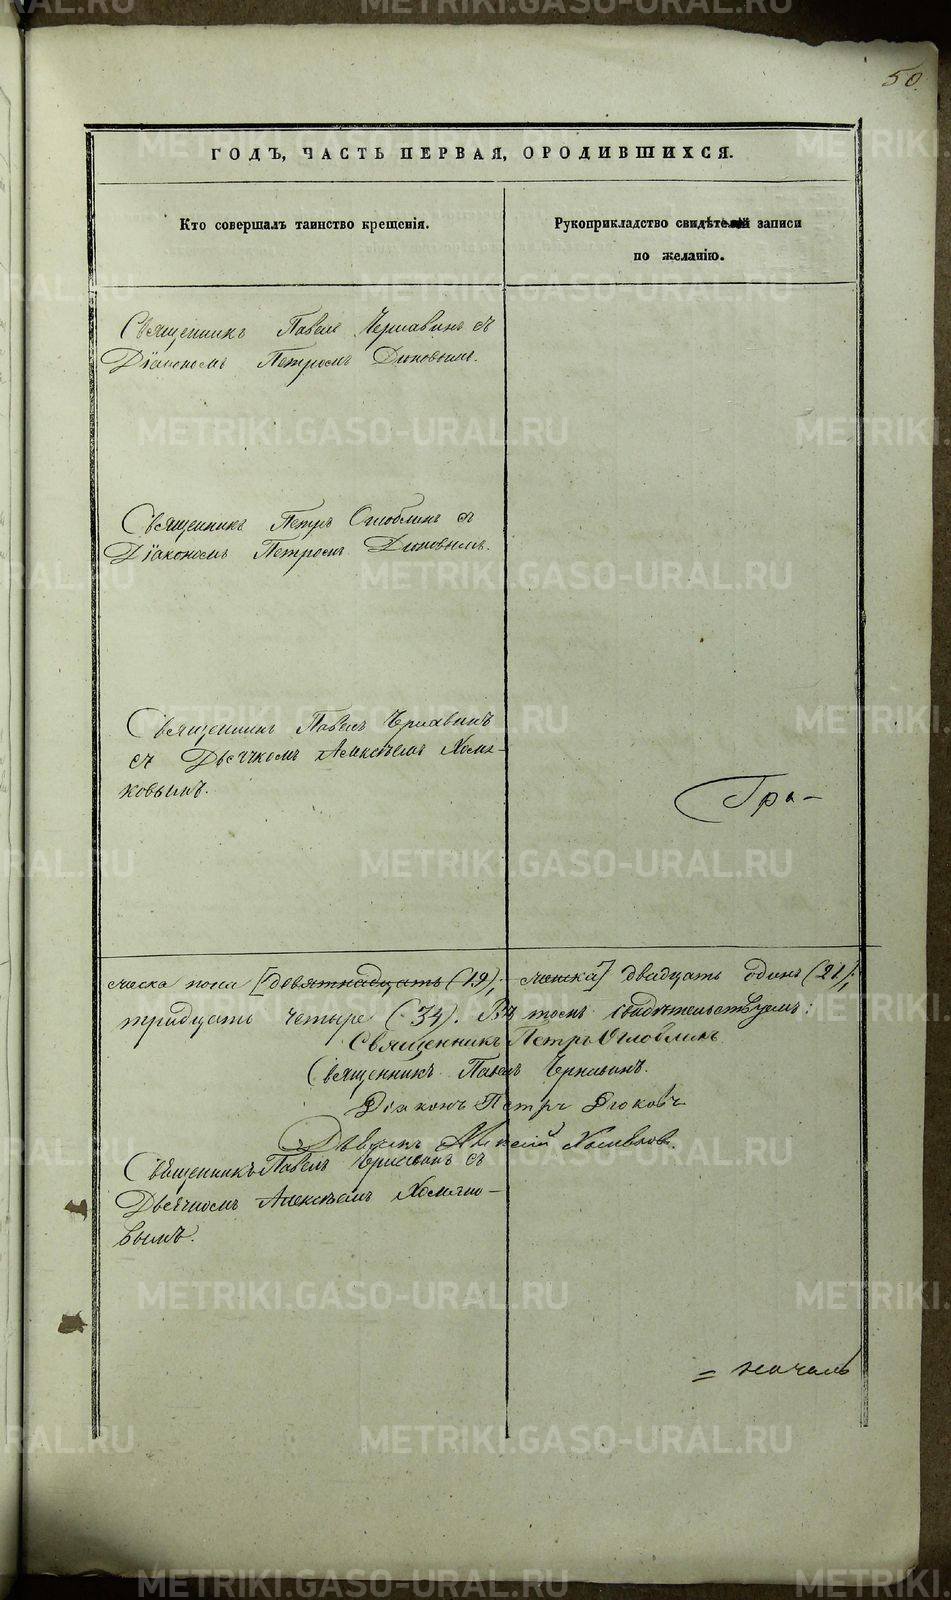 50.
ГОДЪ, ЧАСТЬ ПЕРВАЯ, О РОДИВШИХСЯ.
Кто совершалъ таинство крещенія.
Рукоприкладство свидѣтелей записи
по желанію.
Священникъ Павелъ Чернавинъ съ
Діакономъ Петромъ Диковымъ.
Священникъ Петръ Оглоблинъ съ
Діакономъ Петромъ Диковымъ.
Священникъ Павелъ Чернавинъ
съ Дьячкомъ Алексѣемъ Хомя-
ковымъ.
Гра-
пола [девятнадцать (19), женска] двадцать одинъ (21),
тридцать четыре (34). Въ томъ свидѣтельствуемъ:
Священникъ Петръ Оглоблинъ
Священникъ Павелъ Чернавинъ.
Діаконъ Петръ Диковъ
Алексѣй Хомяковъ.
Священникъ Павелъ Чернавинъ съ
Дьячкомъ Алексѣемъ Хомяко-
вымъ.
METRIKI.GASO-URAL.RU